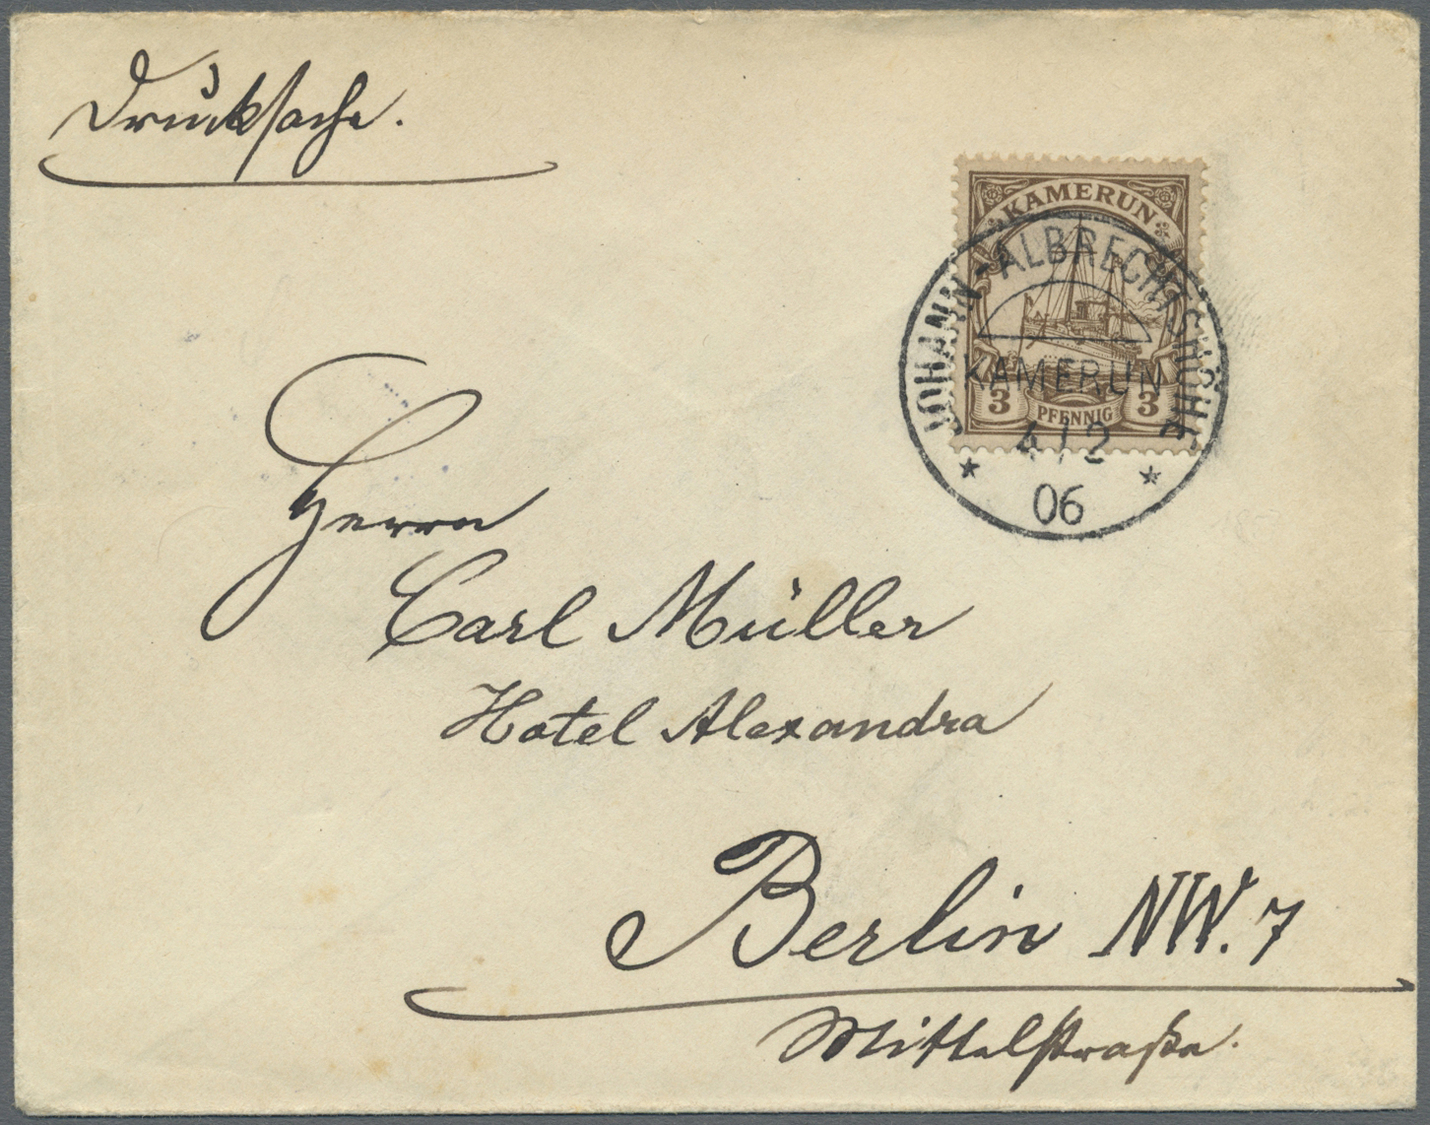 Drucksache.
KAMERUN
3 PFENNIG 3
JOHANN-ALBRECHTSHÖHE
KAMERUN
4/2
06
Herrn
Carl Müller
Hotel Alexandra
Berlin NW. 7
Mittelstraße.